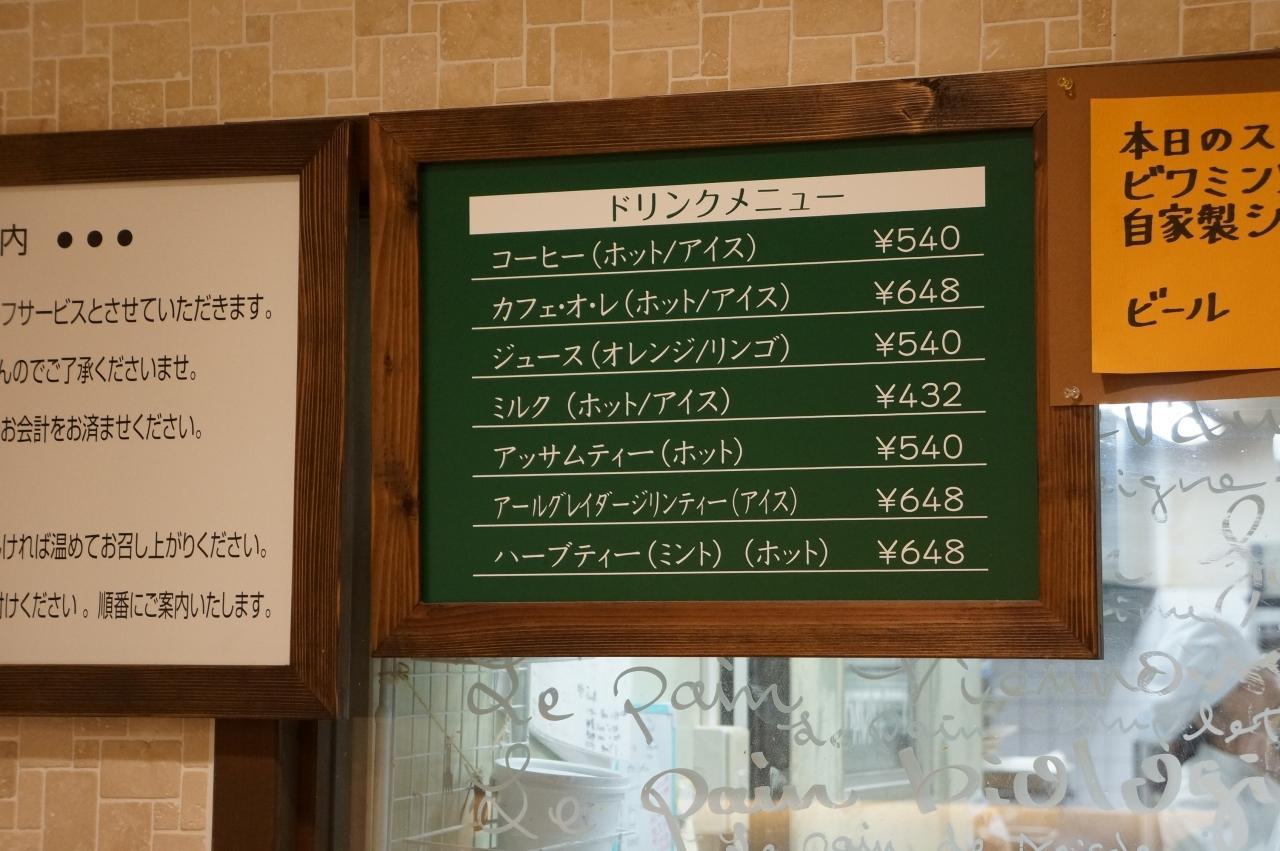 内 ●●●
フサービスとさせていただきます。
んのでご了承くださいませ。
お会計をお済ませください。
ければ温めてお召し上がりください。
けください。順番にご案内いたします。
ドリンクメニュー
コーヒー(ホット/アイス) ¥540
カフェ・オ・レ(ホット/アイス) ¥648
ジュース(オレンジ/リンゴ) ¥540
ミルク (ホット/アイス) ¥432
アッサムティー(ホット) ¥540
アールグレイダージリンティー(アイス) ¥648
ハーブティー(ミント) (ホット) ¥648
本日のス
ビワミン
自家製シ
ビール
Le Pain Vienno
de pain complet
Le pain biologi